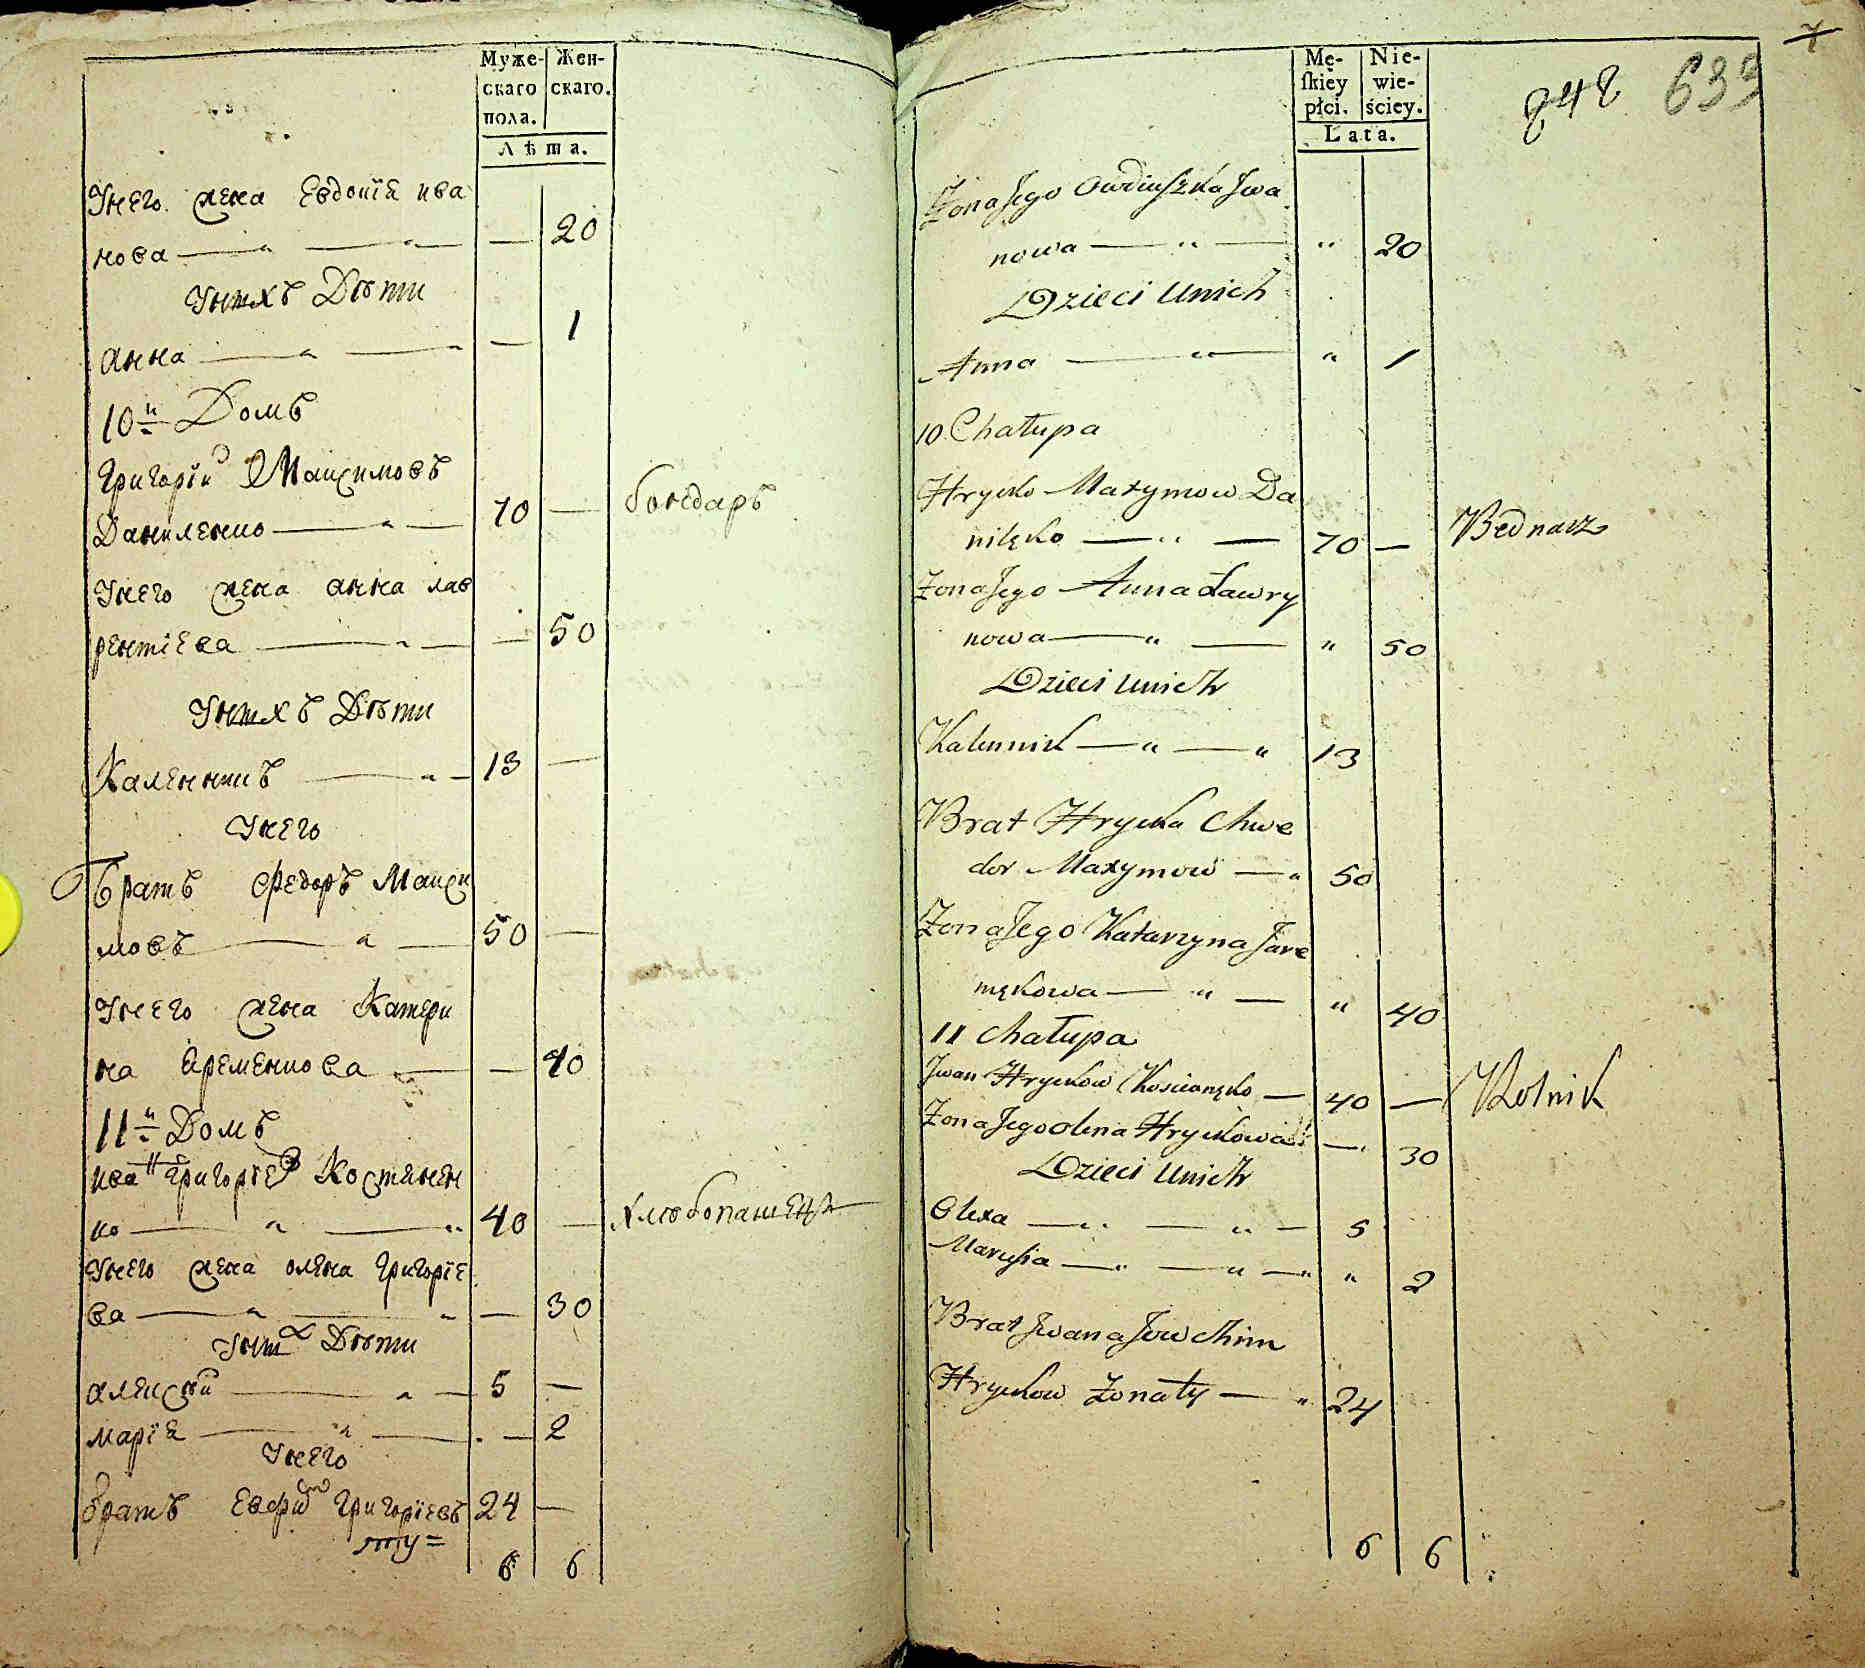 Муже- Жен-
скаго скаго.
пола.
Лѣта.
Унего жена Евдокія ива
нова — „ — „ — — 20
Унихъ Дѣти
анна — „ — „ — 1
10й Домъ
Григорій Максимовъ
Даниленко — „ — 70 — бондаръ
Унего жена анна лав
рентіева — „ — — 50
Унихъ Дѣти
Каленикъ — „ — 13 —
Унего
братъ Федоръ Макси
мовъ — „ — 50 —
Унего жена Катери
на Яременкова — — 40
11й Домъ
иванъ григорїевъ Костянен
ко — „ — „ 40 — хлебопашецъ
Унего жена олена григоріе
ва — „ — „ — 30
Унихъ Дѣти
алексѣй — „ — 5 —
марія — „ — — 2
Унего
братъ Евфим григоріевъ 24 —
ту=
6 6
7
Mę- Nie-
ſkiey wie-
płci. ściey.
Lata.
242 633
Zona Jego Owdiuszka Jwa
nowa — „ — „ 20
Dzieci Unich
Anna — „ — „ 1
10 Chałupa
Hrycko Maxymow Da
nilęko — „ — 70 — Bednarz
Zona Jego Anna Ławry
nowa — „ — „ 50
Dzieci Unich
Kalennik — „ — „ 13
Brat Hrycka Chwe
dor Maxymow — „ 50
Zona Jego Katarzyna Jare
mękowa — „ — „ 40
11 Chałupa
Jwan Hryckow Kościanęko — 40 — Rolnik
Zona Jego olena Hryckowa — 30
Dzieci Unich
Olexa — „ — „ — 5
Marysia — „ — „ — „ 2
Brat Jwana Jowchim
Hryckow Zonaty — „ 24
6 6